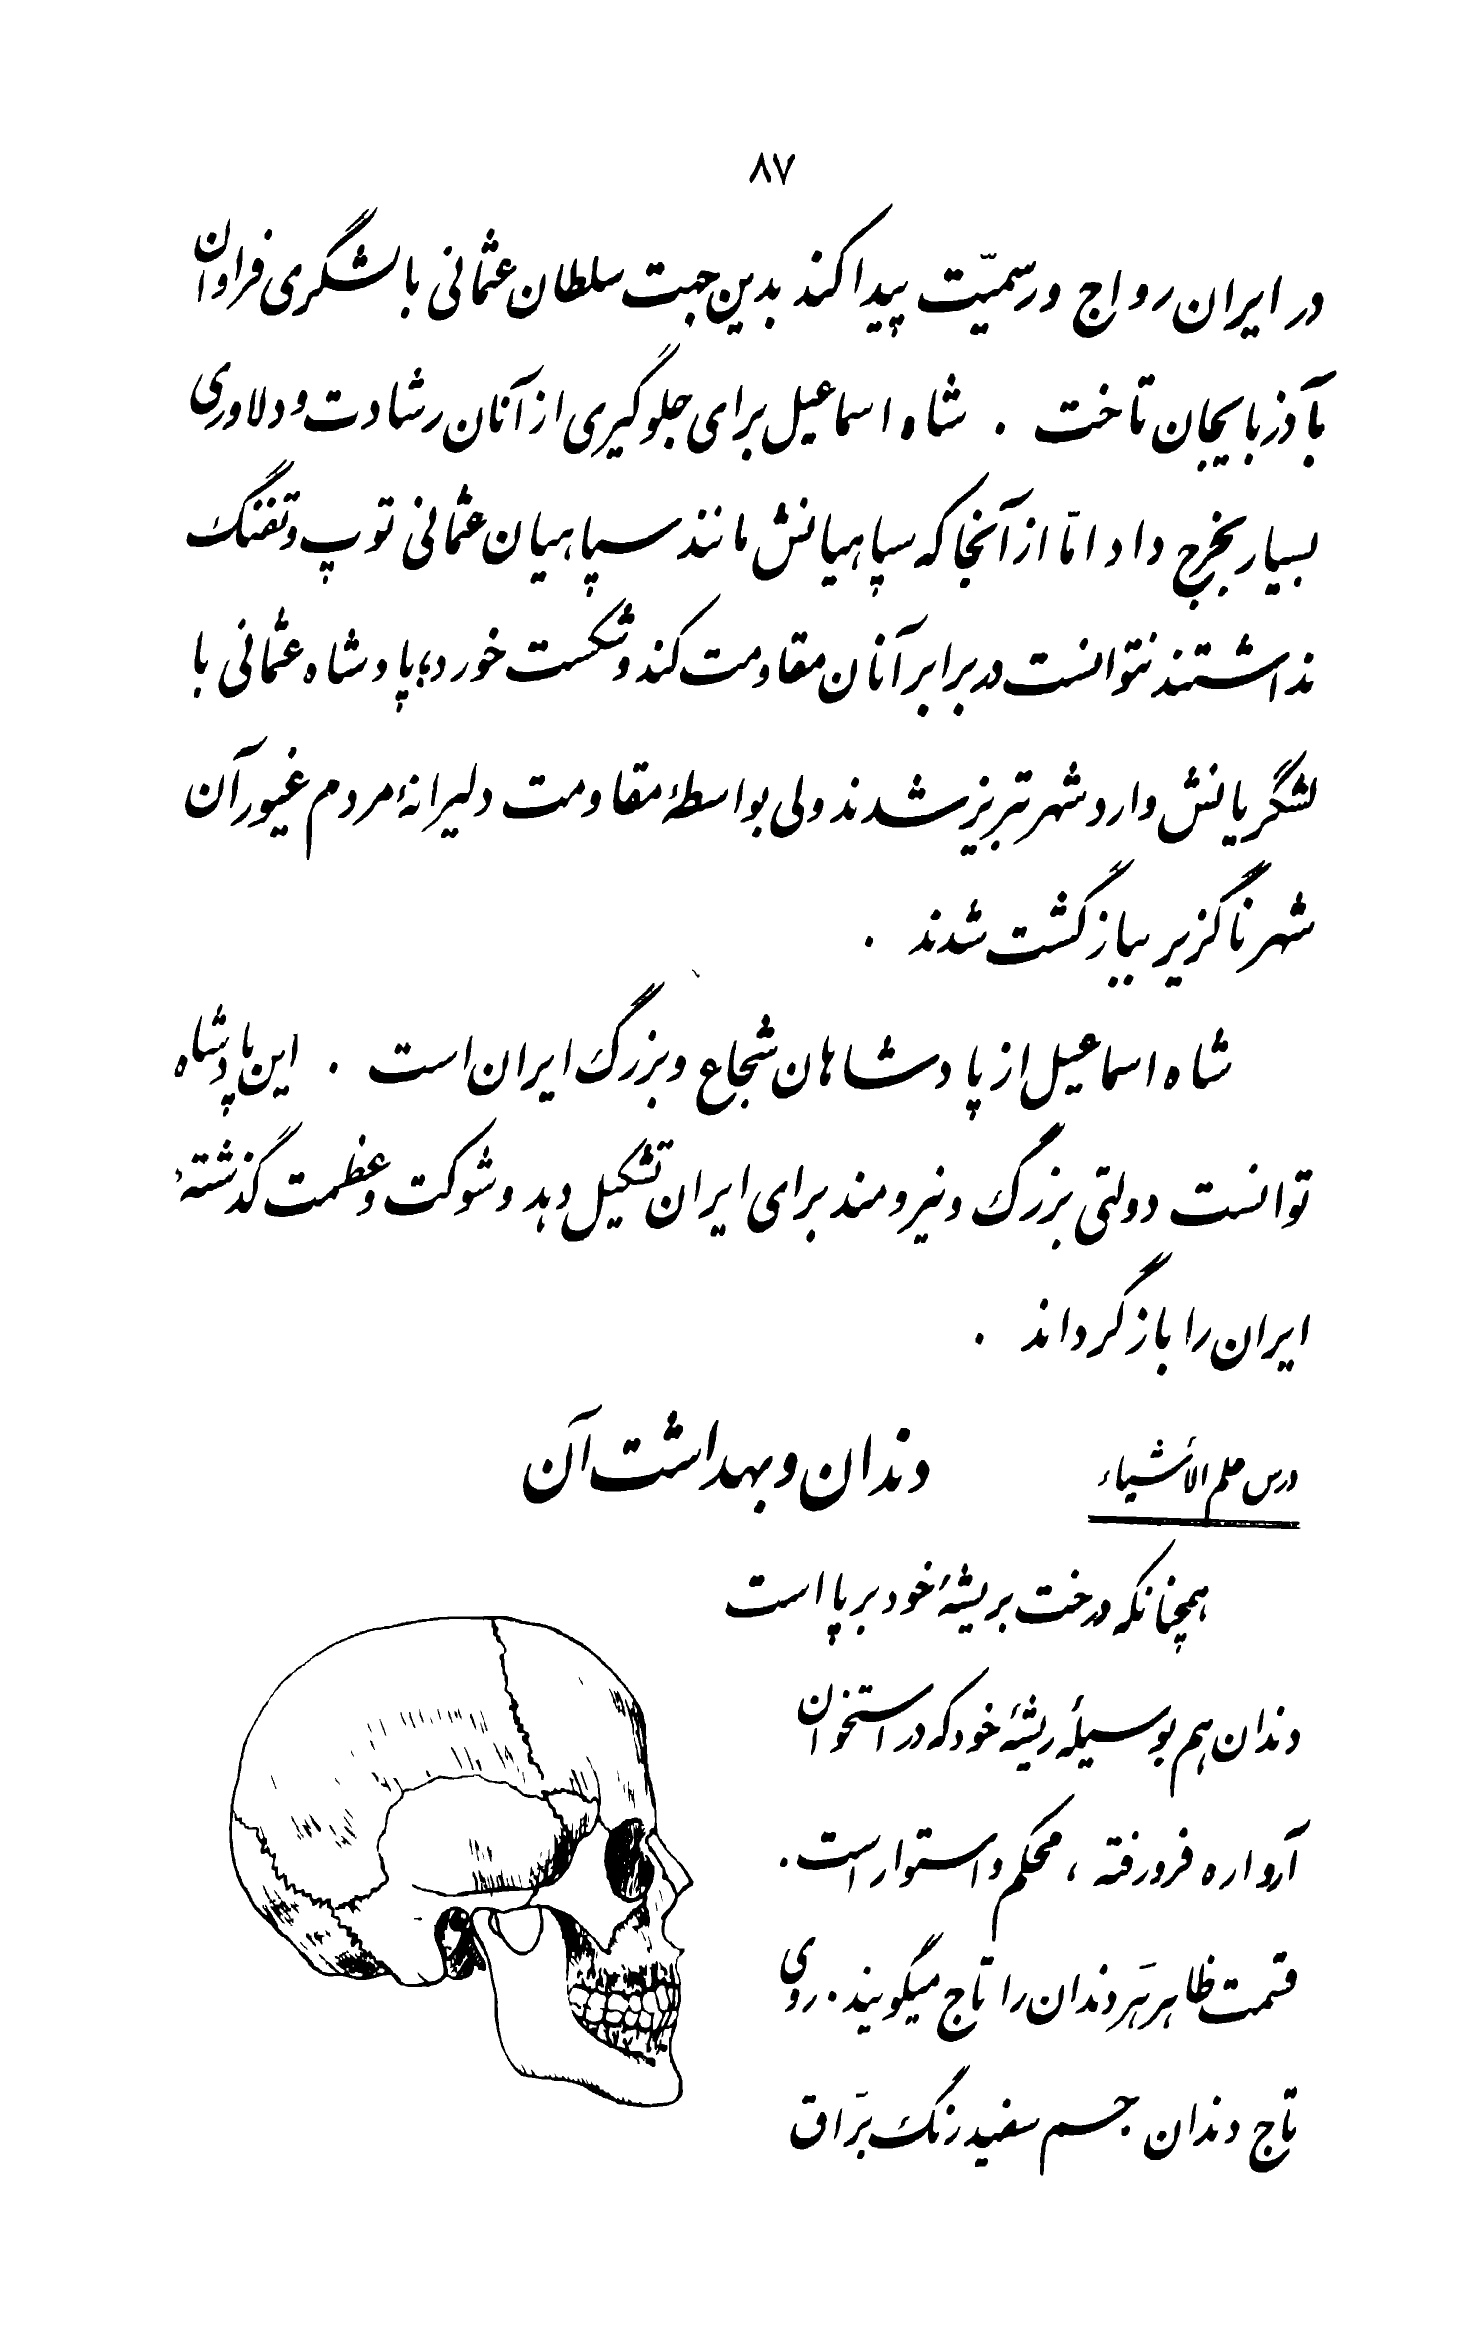 ۸۷
در ایران رواج ورسمیّت پیدا کند بدین جهت سلطان عثمانی با لشگری فراوان
بآذربایجان تاخت . شاه اسماعیل برای جلوگیری از آنان رشادت و دلاوری
بسیار بخرج داد امّا از آنجا که سپاهیانش مانند سپاهیان عثمانی توپ و تفنگ
نداشتند نتوانست در برابر آنان مقاومت کند و شکست خورد؛ پادشاه عثمانی با
لشگریانش وارد شهر تبریز شدند ولی بواسطهٔ مقاومت دلیرانهٔ مردم غیور آن
شهر ناگزیر ببازگشت شدند .
شاه اسماعیل از پادشاهان شجاع و بزرگ ایران است . این پادشاه
توانست دولتی بزرگ و نیرومند برای ایران تشکیل دهد و شوکت و عظمت گذشتهٔ
ایران را بازگرداند .
درس علم الأشیاء
دندان و بهداشت آن
همچنانکه درخت بریشهٔ خود برپا است
دندان هم بوسیلهٔ ریشهٔ خود که در استخوان
آرواره فرورفته ، محکم و استوار است .
قسمت ظاهر هَر دندان را تاج میگویند . روی
تاج دندان جسم سفید رنگ برّاق